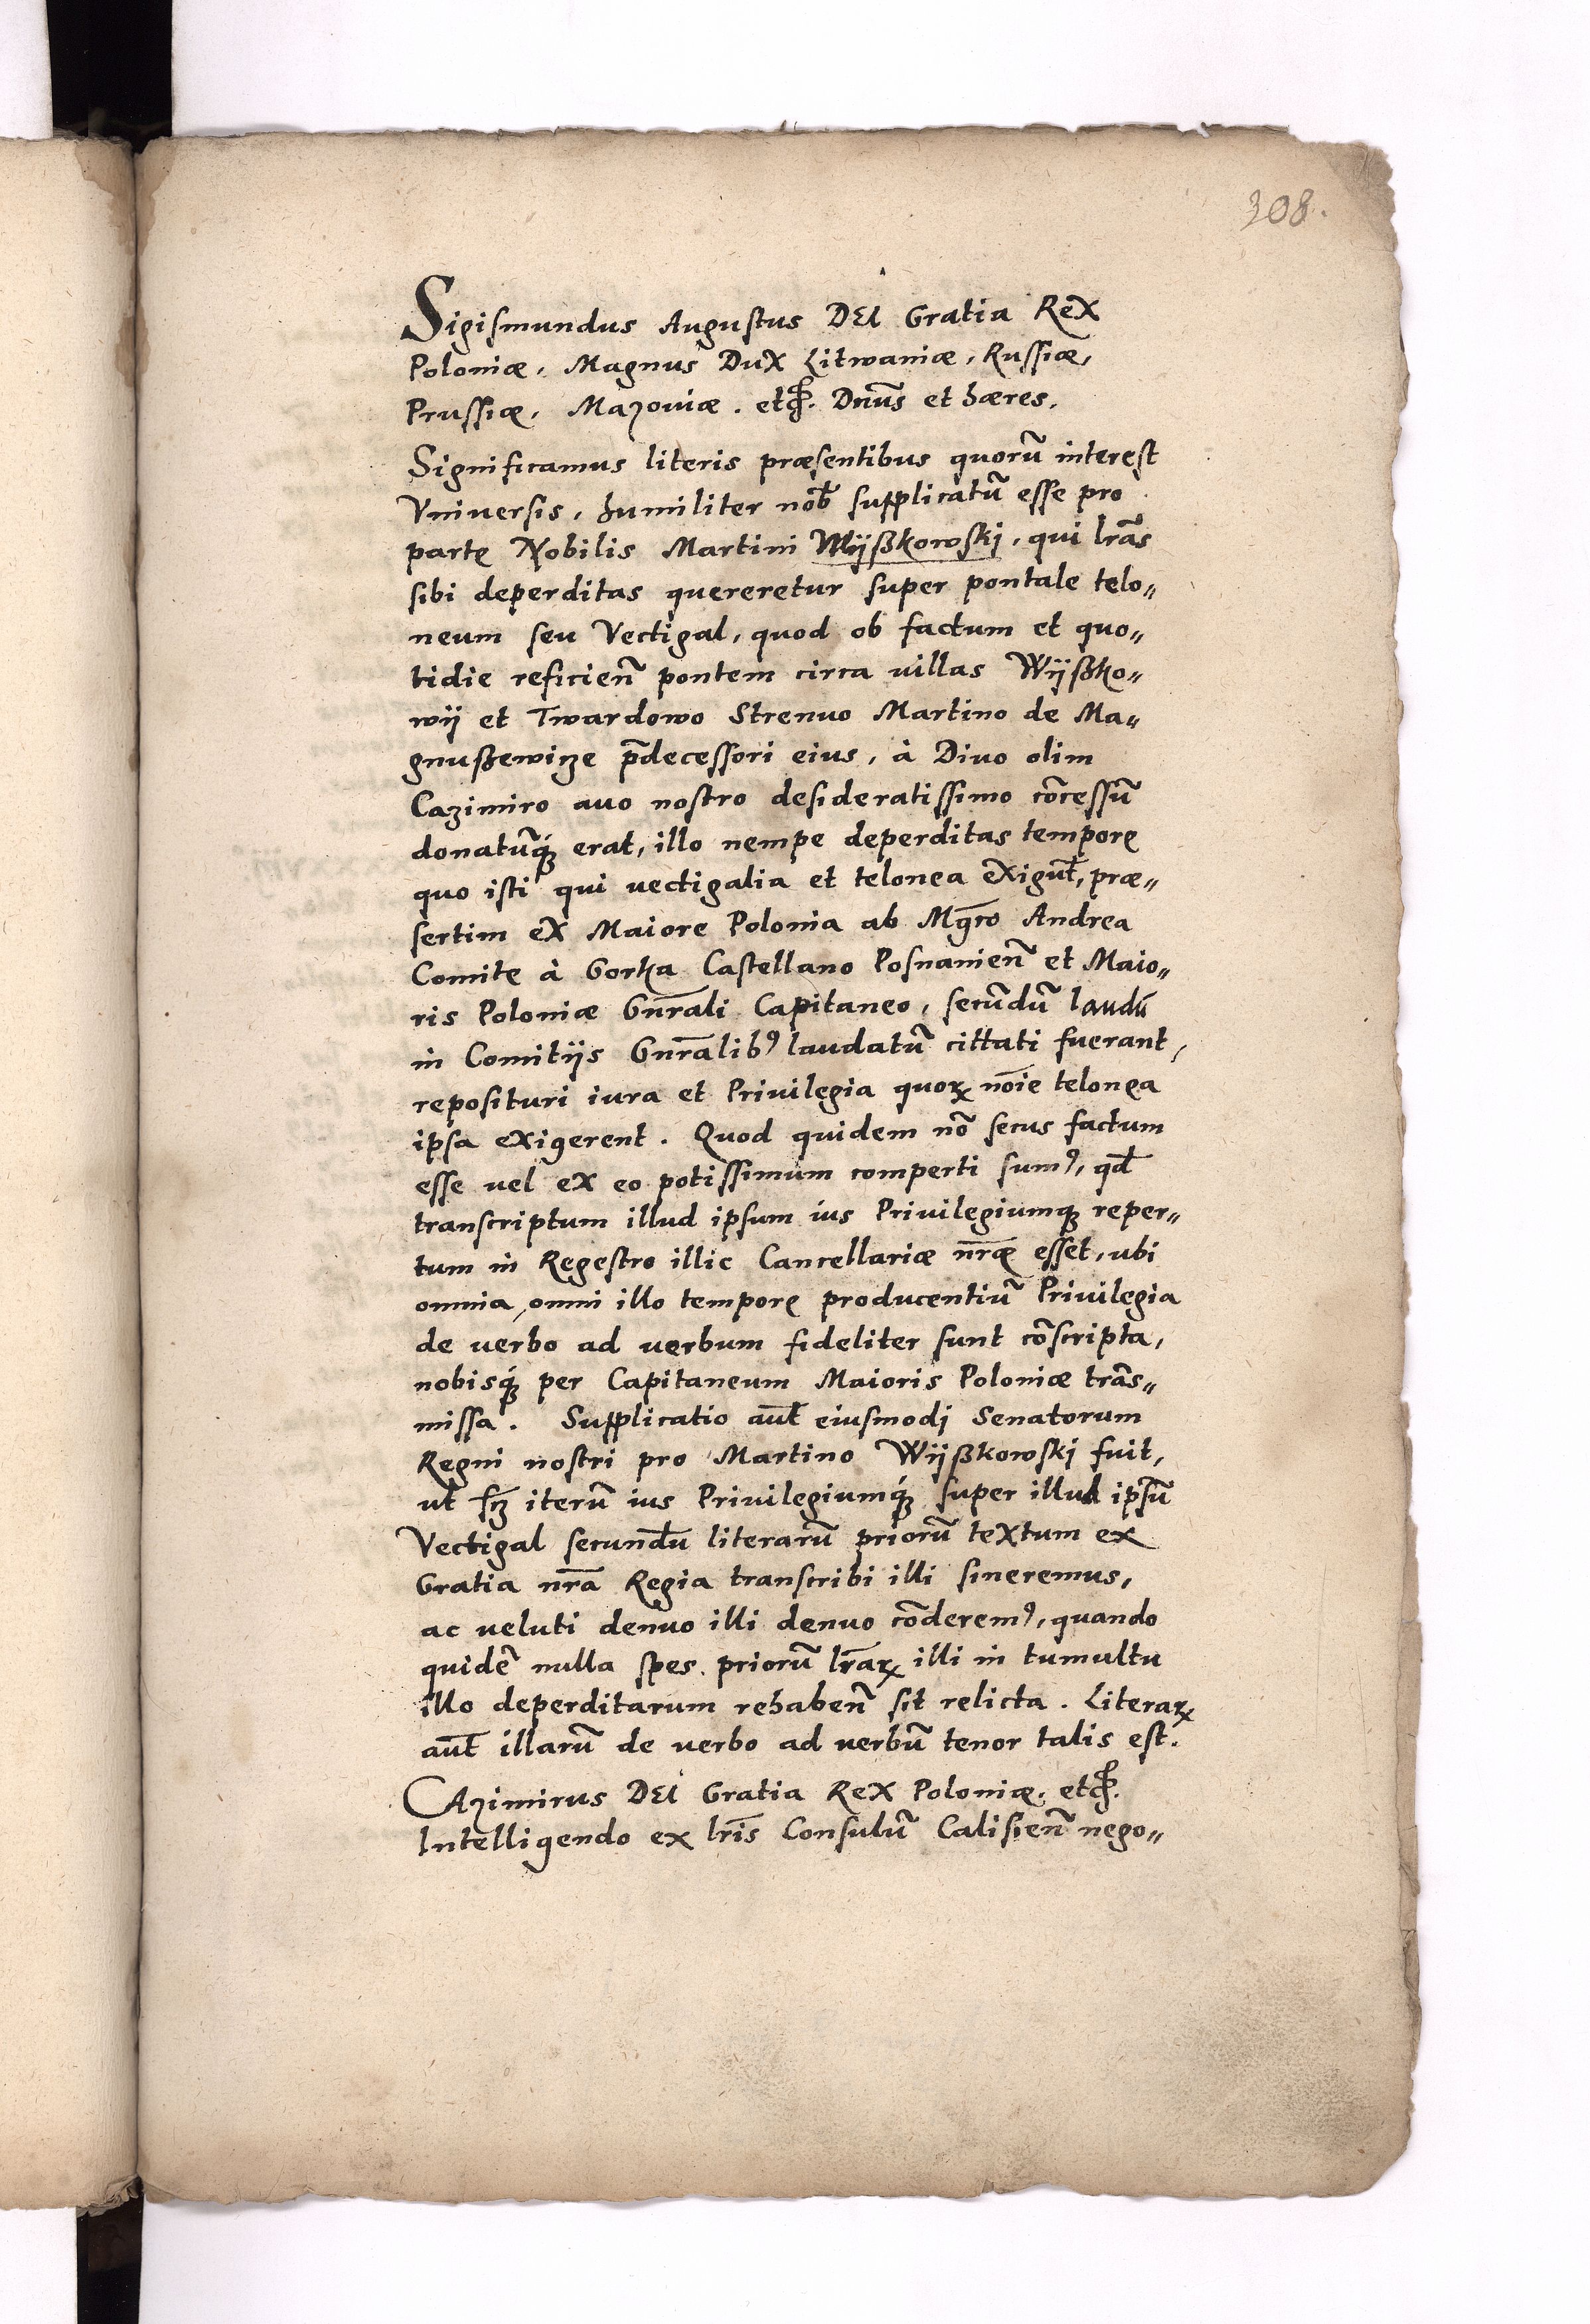 308.
Sigismundus Augustus DEI Gratia Rex
Poloniæ, Magnus Dux Litwaniæ, Russiæ,
Prussiæ, Mazoviæ. etc. Dnus̄ et hæres.
Significamus literis præsentibus quorū interest
Vniversis, humiliter nob̄ supplicatū esse pro
parte Nobilis Martini Wÿßkowskj, qui lrās
sibi deperditas quereretur super pontale telo„
neum seu Vectigal, quod ob factum et quo„
tidie reficien̄ pontem circa villas Wÿßko„
wÿ et Twardowo Strenuo Martino de Ma„
gnußewicze p̄decessori eius, à Divo olim
Cazimiro avo nostro desideratissimo cōcessū
donatūq́ꝫ erat, illo nempe deperditas tempore
quo isti qui vectigalia et telonea exigūt, præ„
sertim ex Maiore Polonia ab Mgc̄o Andrea
Comite à Gorka Castellano Posnanien̄ et Maio„
ris Poloniæ Gnr̄ali Capitaneo, secūdū laudū
in Comitijs Gnr̄alibꝰ laudatū cittati fuerant,
reposituri iura et Privilegia quoꝝ nōie telonea
ipsa exigerent. Quod quidem nō secus factum
esse vel ex eo potissimum comperti sumꝰ, qd̄
transcriptum illud ipsum ius Privilegiumqꝫ reper„
tum in Regestro illic Cancellariæ nrǣ esset, ubi
omnia, omni illo tempore producentiū Privilegia
de verbo ad verbum fideliter sunt cōscripta,
nobisq́ꝫ per Capitaneum Maioris Poloniæ trās„
missa. Supplicatio aūt eiusmodj Senatorum
Regni nostri pro Martino Wÿßkowskj fuit,
ut iterū ius Privilegiumq́ꝫ super illud ipsū
Vectigal secundū literarū priorū textum ex
Gratia nrā Regia transcribi illi sineremus,
ac veluti denuo illi denuo cōderemꝰ, quando
quidē nulla spes priorū lrāꝝ illi in tumultu
illo deperditarum rehaben̄ sit relicta. Literaꝝ
aūt illarū de verbo ad verbū tenor talis est.
Cazimirus DEI Gratia Rex Poloniæ. etc.
Intelligendo ex lrīs Consulū Calisien̄ nego„